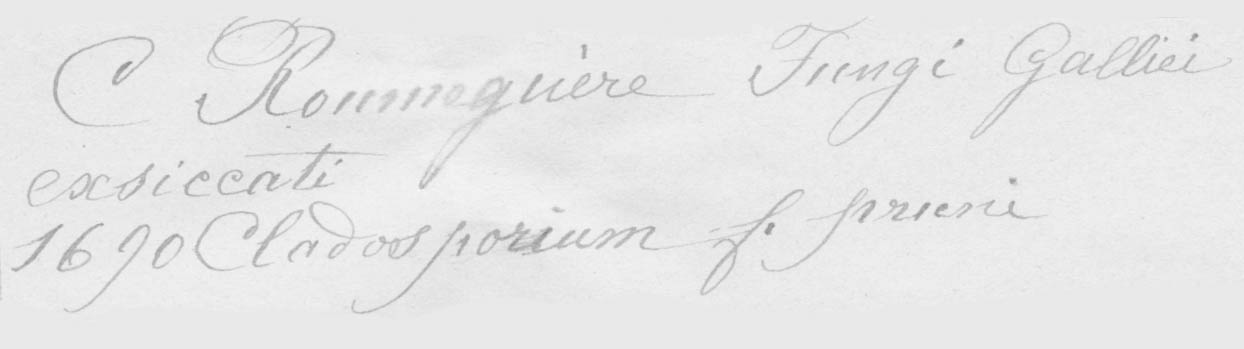 C Roumeguère Fungi Galliei
exsiccati
1690 Cladosporium f. pruni